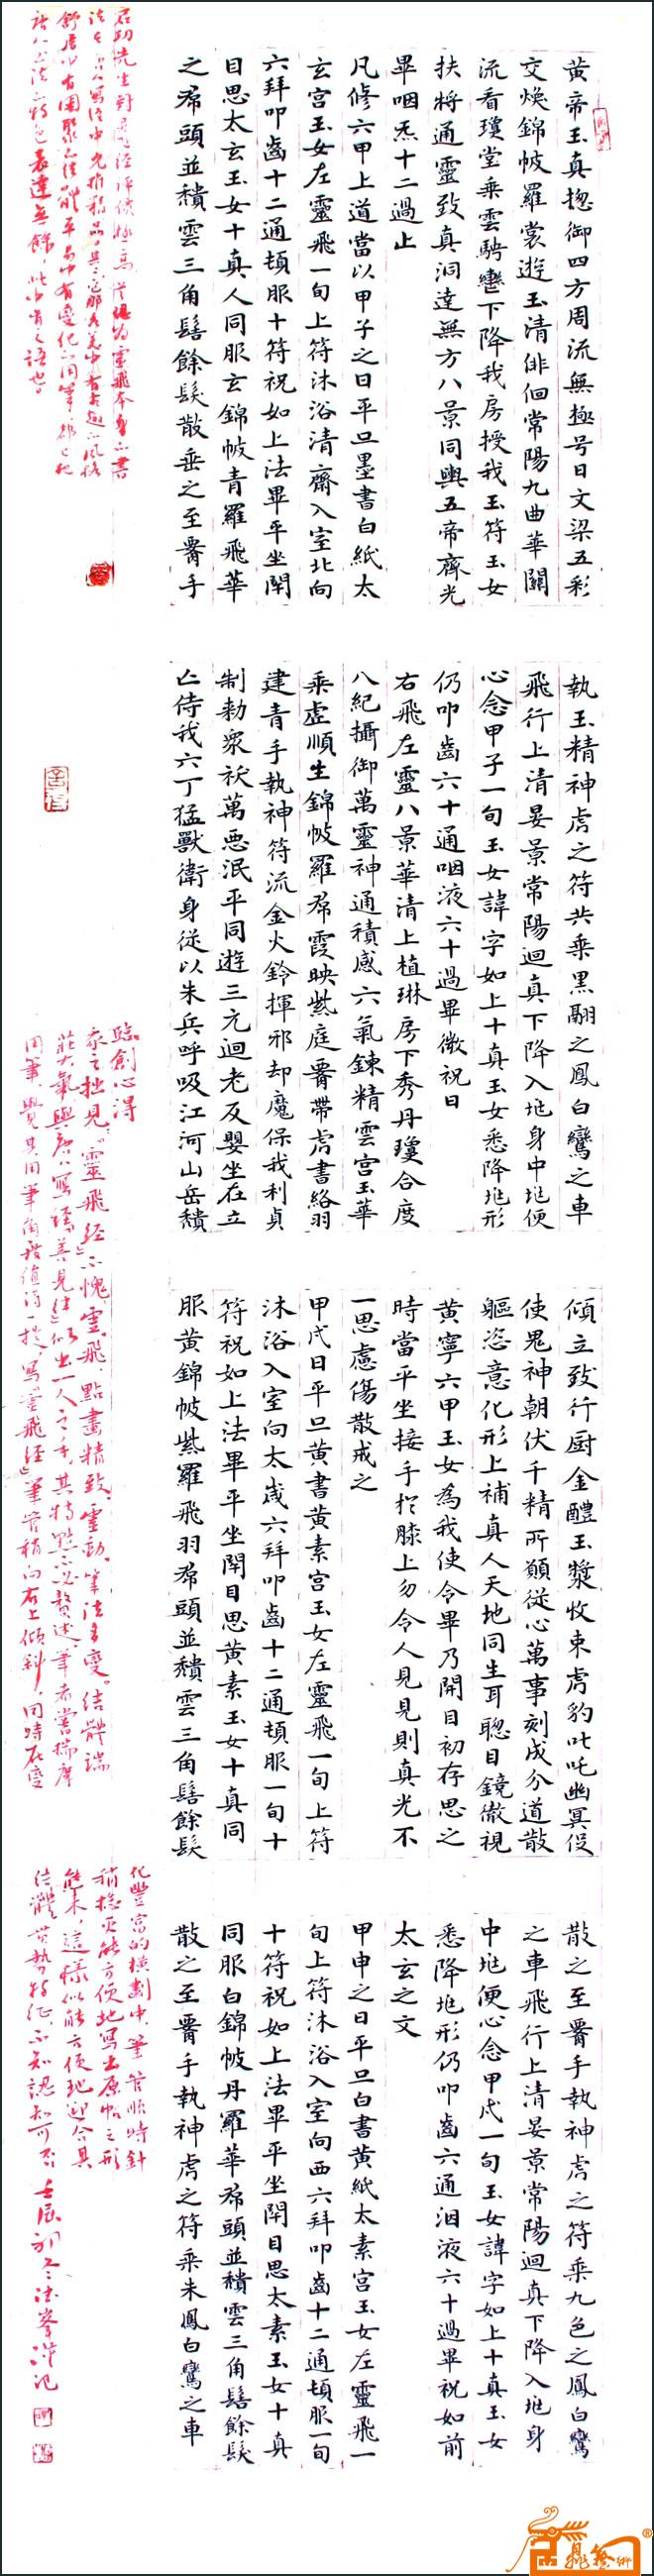 黃帝玉真揔御四方周流無極号日文梁五彩
交煥錦帔羅裳遊玉清俳佪常陽九曲華關
流看瓊堂乗雲騁轡下降我房授我玉符玉女
扶將通靈致真洞達無方八景同輿五帝齊光
畢咽炁十二過止
凡修六甲上道當以甲子之日平旦墨書白紙太
玄宫玉女左靈飛一旬上符沐浴清齋入室北向
六拜叩齒十二通頓服十符祝如上法畢平坐閇
目思太玄玉女十真人同服玄錦帔青羅飛華
之帬頭並穨雲三角髻餘髮散垂之至署手
執玉精神虎之符共乗黑翮之鳳白鸞之車
飛行上清晏景常陽迴真下降入地身中地便
心念甲子一旬玉女諱字如上十真玉女悉降地形
仍叩齒六十通咽液六十過畢微祝日
右飛左靈八景華清上植琳房下秀丹瓊合度
八紀攝御萬靈神通積感六氣鍊精雲宫玉華
乗虚順生錦帔羅帬霞映紫庭署帶虎書絡羽
建青手執神符流金火鈴揮邪却魔保我利貞
制勑衆袄萬惡泯平同遊三元迴老反嬰坐在立
亾侍我六丁猛獸衛身従以朱兵呼吸江河山岳穨
傾立致行厨金醴玉漿收束虎豹叱吒幽冥伇
使鬼神朝伏千精所願従心萬事剋成分道散
軀恣意化形上補真人天地同生耳聰目鏡徹視
黃寧六甲玉女為我使令畢乃開目初存思之
時當平坐接手扵膝上勿令人見見則真光不
一思慮傷散戒之
甲戌日平旦黃書黃素宫玉女左靈飛一旬上符
沐浴入室向太歲六拜叩齒十二通頓服一旬十
符祝如上法畢平坐閇目思黃素玉女十真同
服黃錦帔紫羅飛羽帬頭並穨雲三角髻餘髮
散之至署手執神虎之符乗九色之鳳白鸞
之車飛行上清晏景常陽迴真下降入地身
中地便心念甲戌一旬玉女諱字如上十真玉女
悉降地形仍叩齒六通洇液六十過畢祝如前
太玄之文
甲申之日平旦白書黃紙太素宫玉女左靈飛一
旬上符沐浴入室向西六拜叩齒十二通頓服一旬
十符祝如上法畢平坐閇目思太素玉女十真
同服白錦帔丹羅華帬頭並穨雲三角髻餘髮
散之至署手執神虎之符乗朱鳳白鸞之車
啓功先生對靈飛經評價極高
臨創心得
家之拙見靈飛經不愧靈飛點畫精致靈動筆法多變結體端
莊大氣與唐人寫經善見律似出一人之手其特點不必贅述筆者嘗揣摩
用筆覺其用筆角度值得一提寫靈飛經筆管稍向右上傾斜同時在變
化豐富的橫劃中筆管順時針
稍捻更能方便地寫出原帖之形
態來這樣似能方便地迎合其
結體莊勢特征不知認知可否